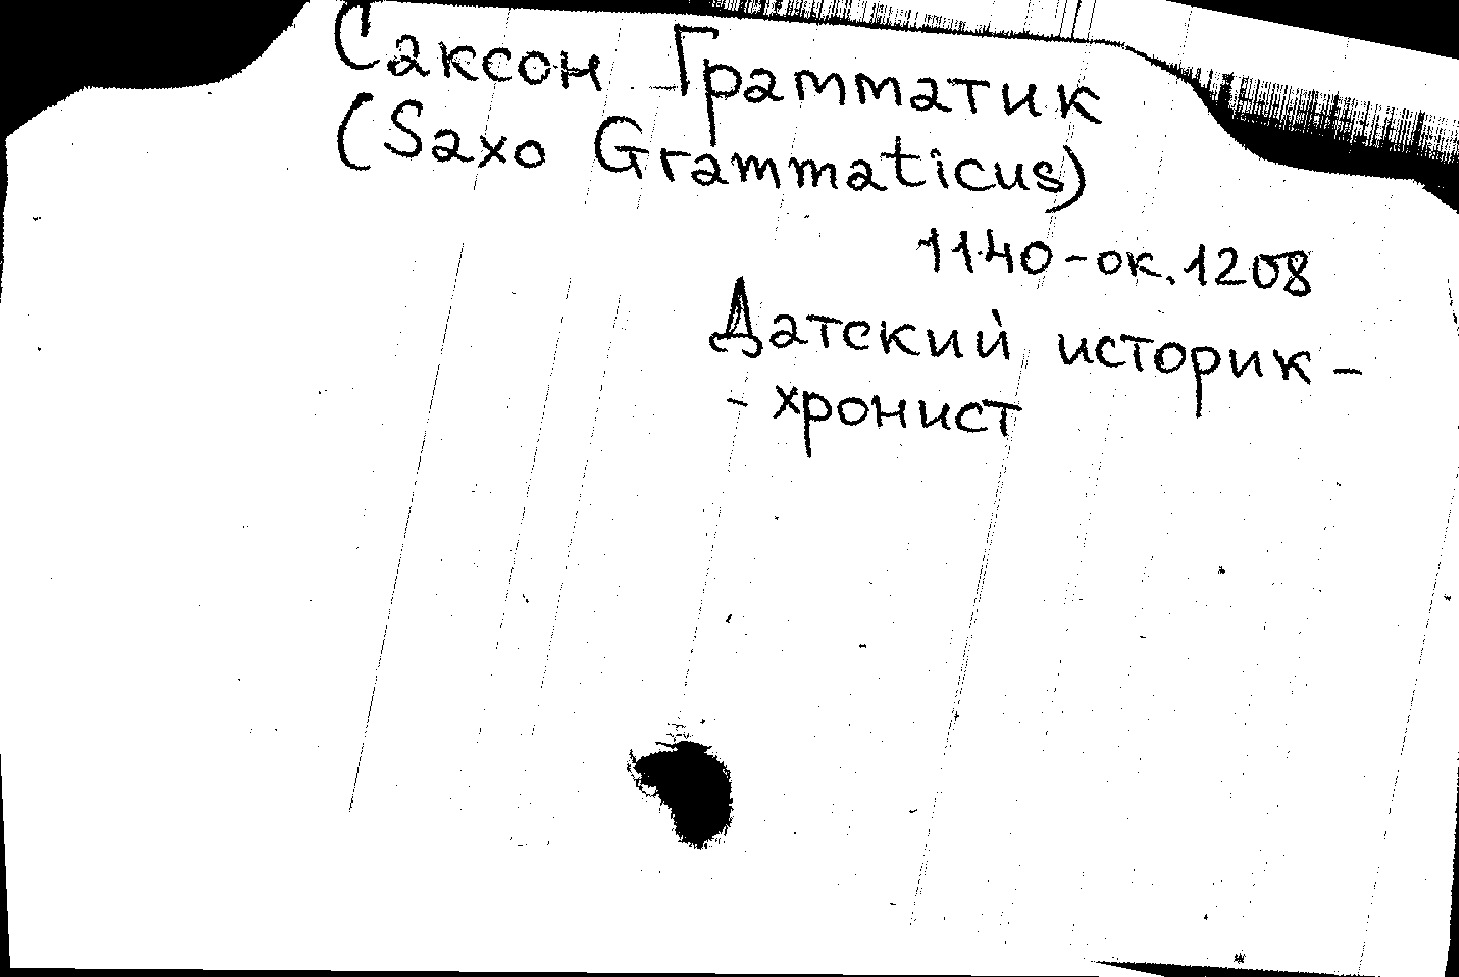 Саксон Грамматик
(Saxo Grammaticus)
1140-ок. 1208
Датский историк-
- хронист